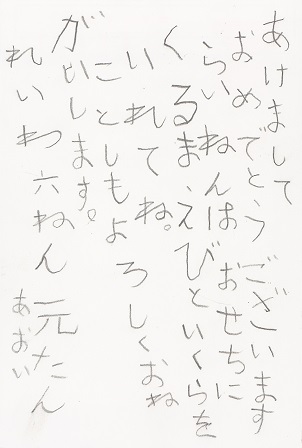 あけまして
おめでとうございます
らいねんはおせちに
くるまえびといくらを
いれてね。
ことしもよろしくおね
がいします。
れいわ六ねん元たん
あおい